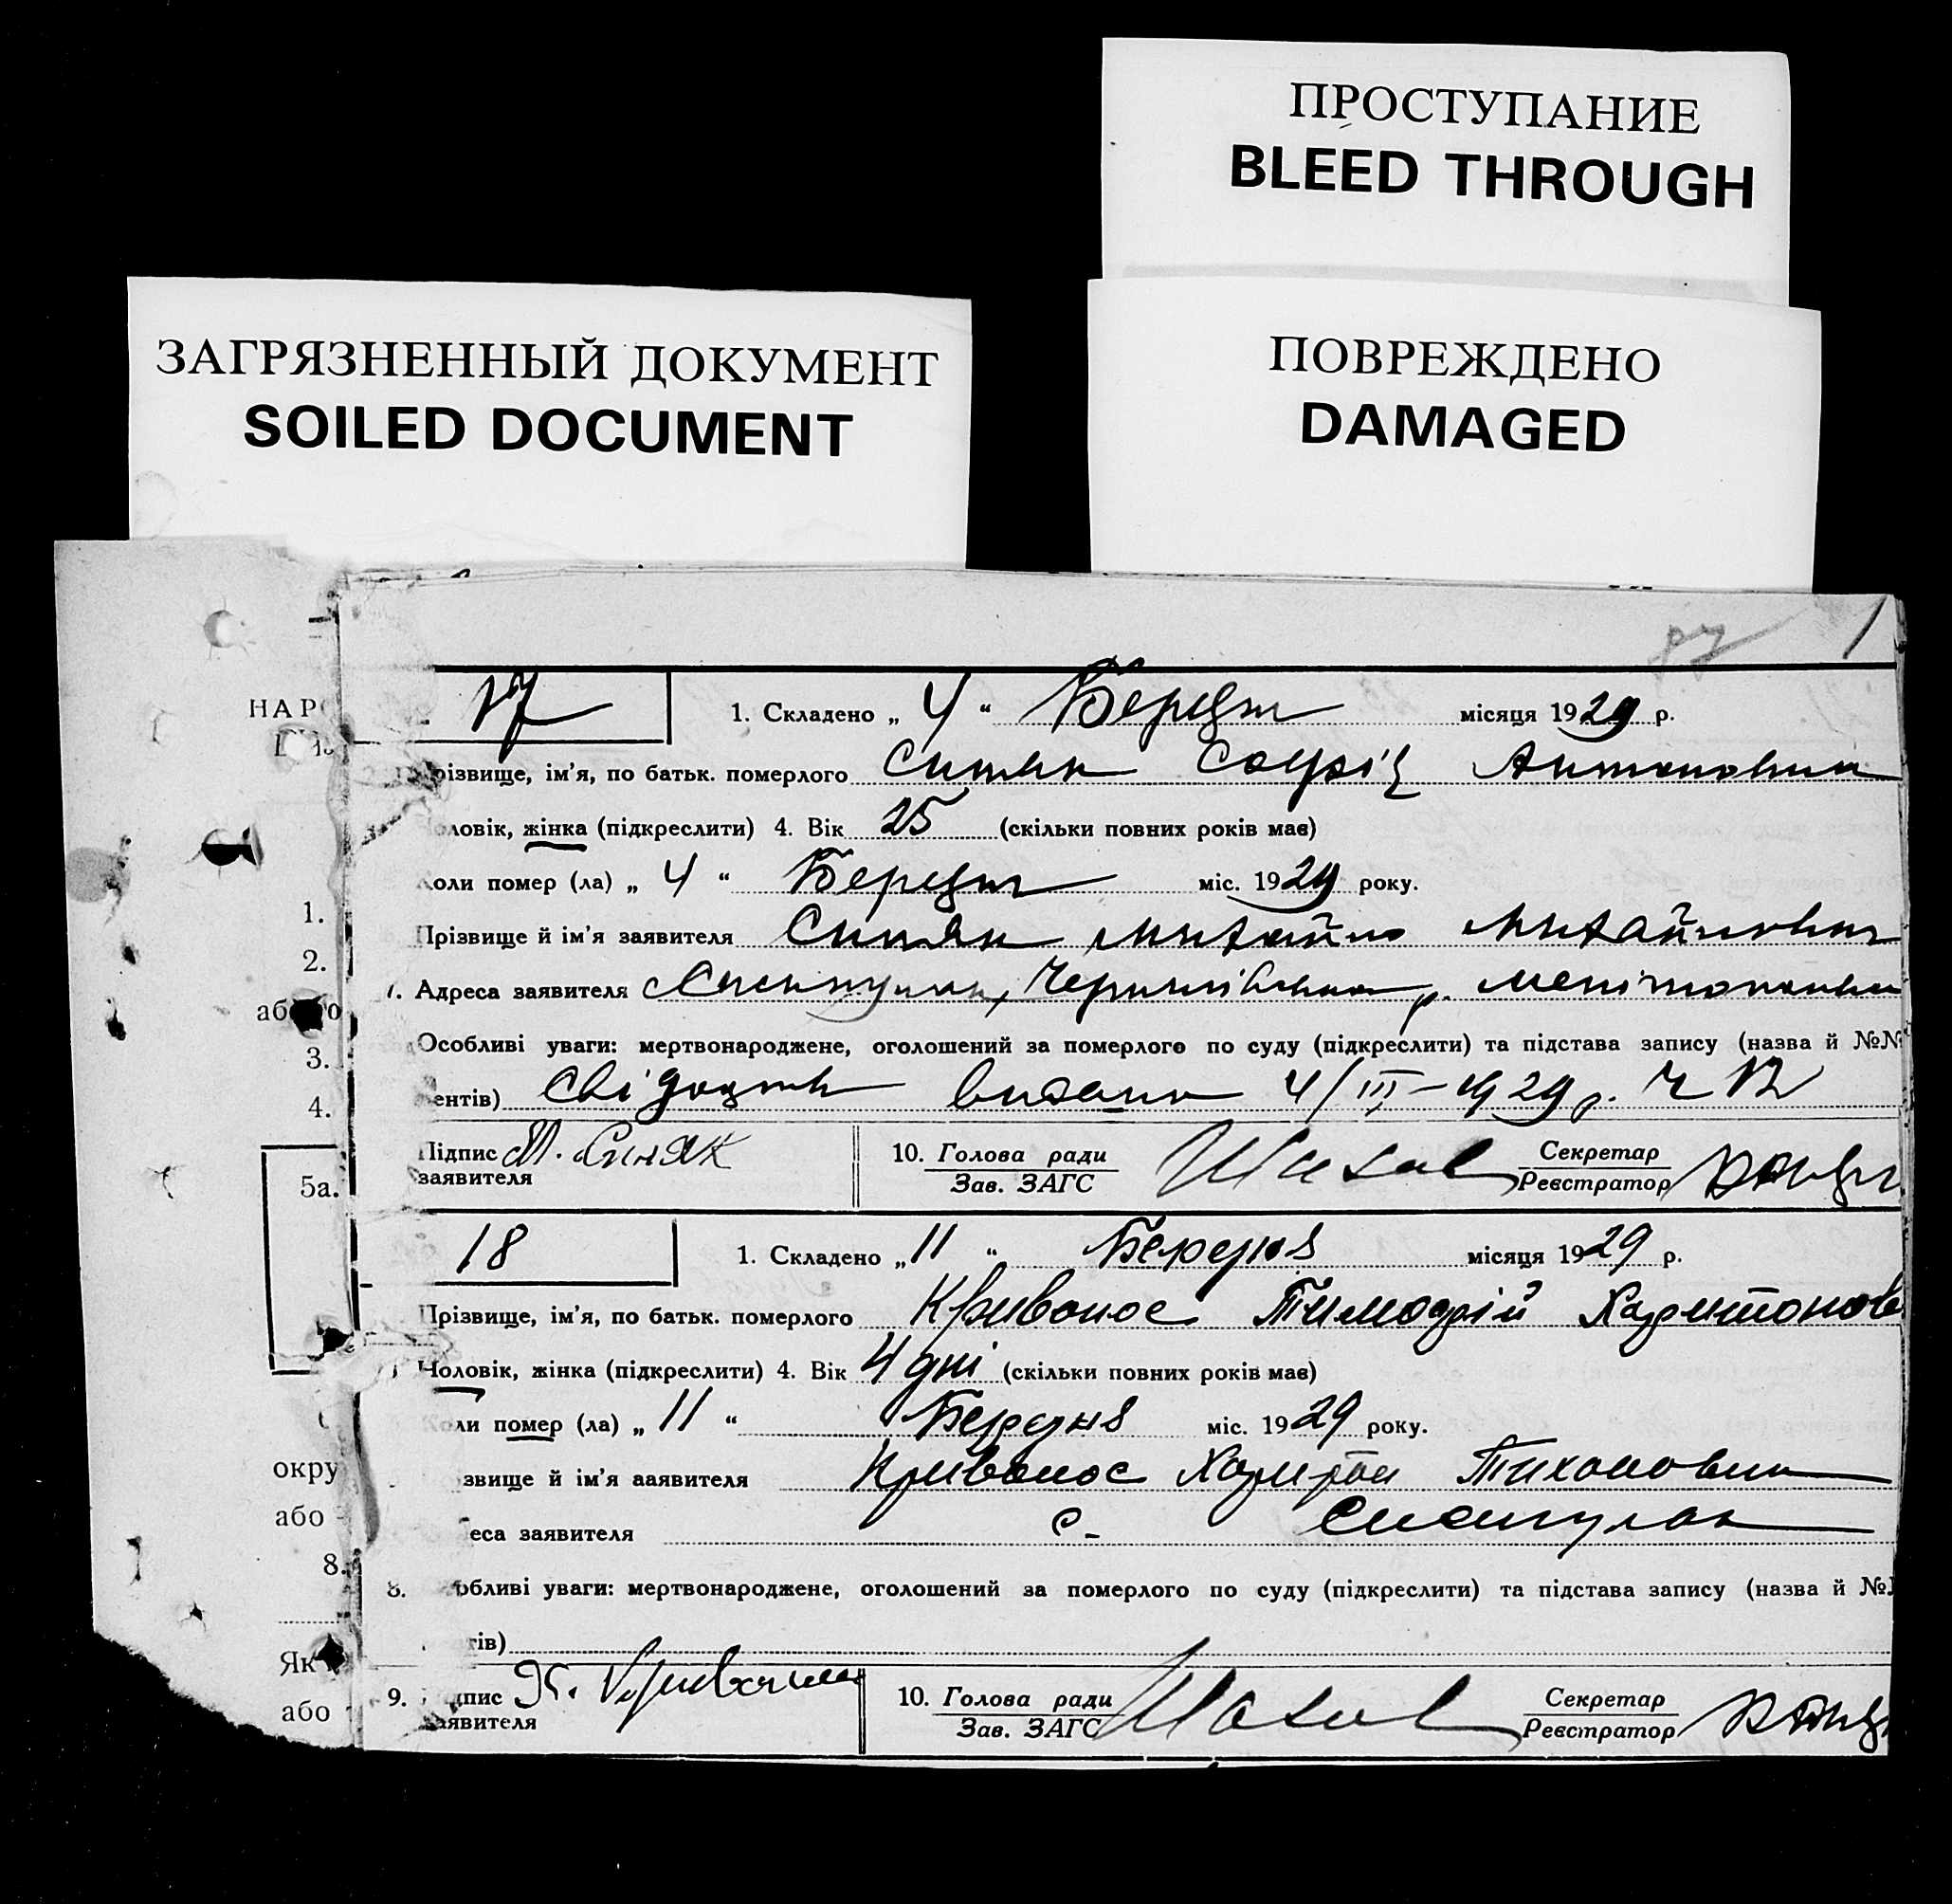 ПРОСТУПАНИЕ
BLEED THROUGH
ЗАГРЯЗНЕННЫЙ ДОКУМЕНТ
SOILED DOCUMENT
ПОВРЕЖДЕНО
DAMAGED
1
НАР
17
1. Складено „ 4 “ місяця 1929 р.
різвище, ім'я, по батьк. померлого Синяк Софія Антоновна
ловік, жінка (підкреслити) 4. Вік 25 (скільки повних років має)
оли помер (ла) „ 4 “ міс. 1929 року.
Прізвище й ім'я заявителя Синяк Михайло Михайлович
7. Адреса заявителя
Особливі уваги: мертвонароджене, оголошений за померлого по суду (підкреслити) та підстава запису (назва й №№
ентів) видано 4/III–1929 р.
Підпис М. Синяк
заявителя
10. Голова ради
Зав. ЗАГС
Секретар
Реєстратор
18
1. Складено „ 11 “ Березня місяця 1929 р.
Прізвище, ім'я, по батьк. померлого Кривонос Тимофій Харитонов
Чоловік, жінка (підкреслити) 4. Вік 4 дні (скільки повних років має)
оли помер (ла) „ 11 “ Березня міс. 1929 року.
звище й ім'я аявителя Кривонос Харитон Тихонович
еса заявителя с.
8. обливі уваги: мертвонароджене, оголошений за померлого по суду (підкреслити) та підстава запису (назва й №
тів)
9. дпис
явителя
10. Голова ради
Зав. ЗАГС
Секретар
Реєстратор
1.
2.
3.
4.
5а.
окру
або
8.
Як
або